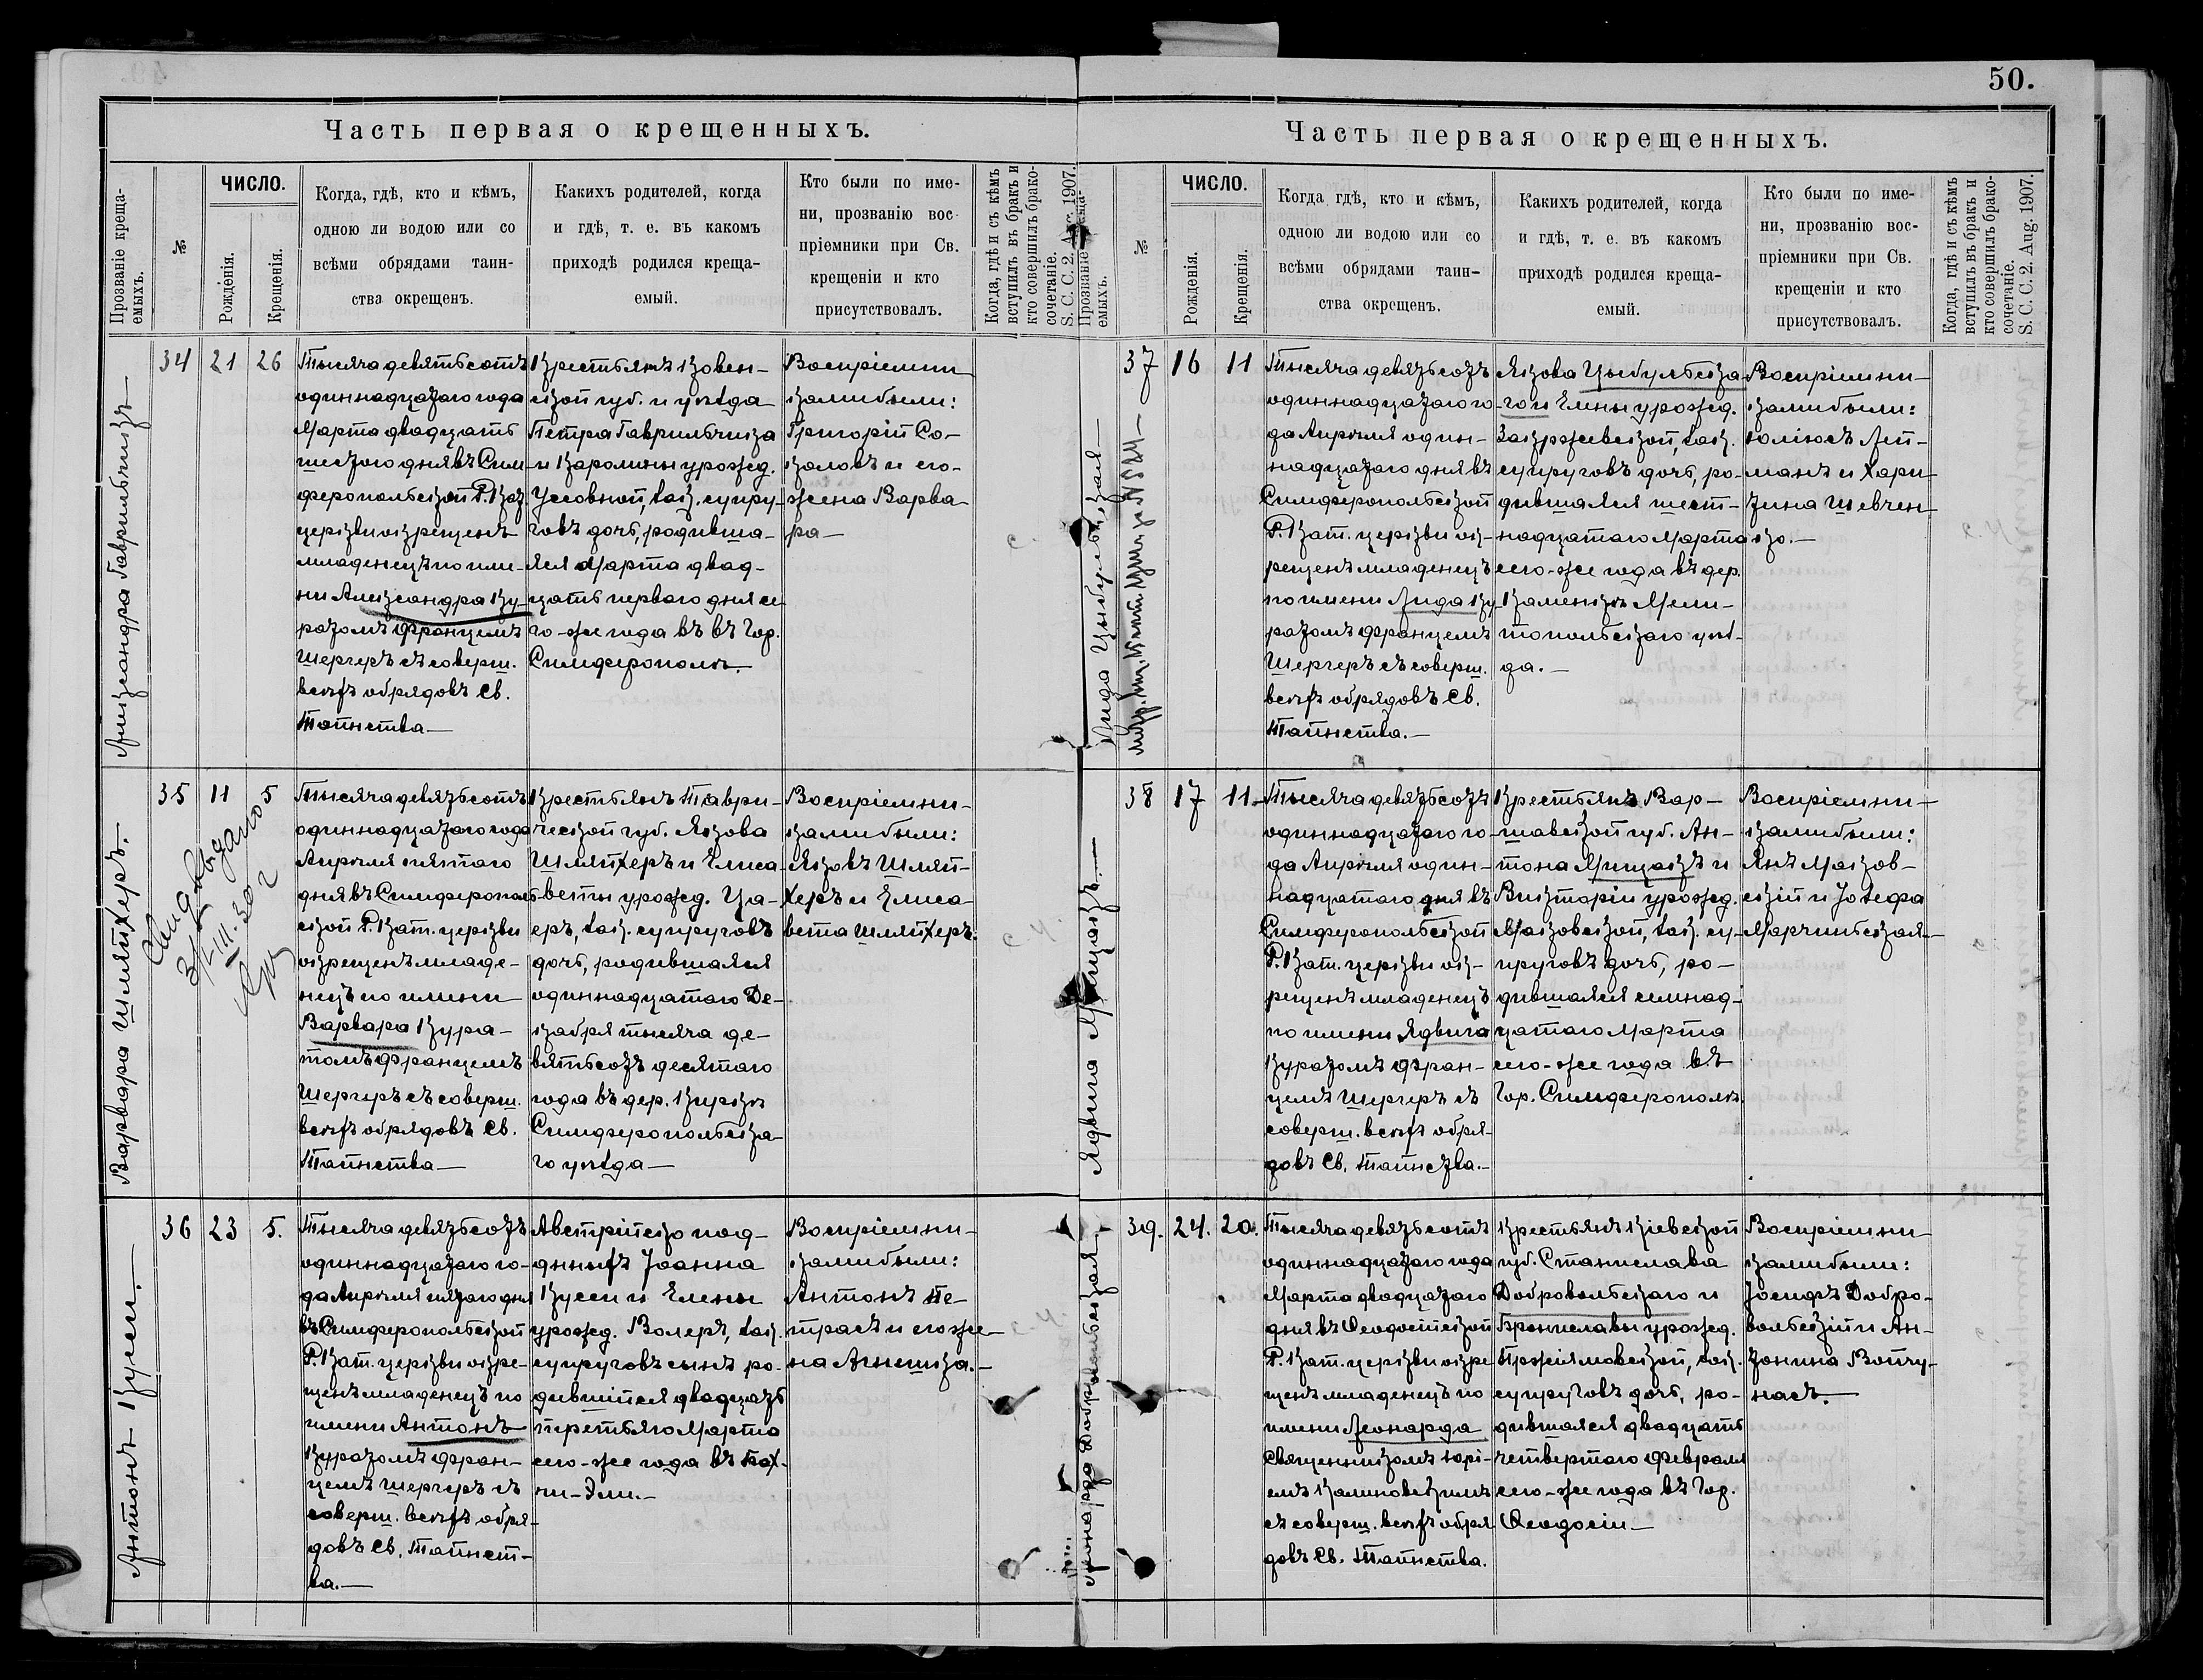 50.
Часть первая о крещенныхъ.
Прозваніе креща-
емыхъ.
№
ЧИСЛО.
Рожденія.
Крещенія.
Когда, гдѣ, кто и кѣмъ,
одною ли водою или со
всѣми обрядами таин-
ства окрещенъ.
Какихъ родителей, когда
и гдѣ, т. е. въ какомъ
приходѣ родился креща-
емый.
Кто были по име-
ни, прозванію вос-
пріемники при Св.
крещеніи и кто
присутствовалъ.
Когда, гдѣ и съ кѣмъ
вступилъ въ бракъ и
кто совершилъ брако-
сочетаніе.
S. C. C. 2. Aug. 1907.
Александра Гаврильчикъ
34
21
26
Тысяча девятьсотъ
одиннадцатаго года
Марта двадцать
шестого дня въ Сим-
феропольской Р. Кат.
церкви окрещенъ
младенецъ по име-
ни Александра Ку-
ратомъ Францемъ
Шергеръ съ соверш.
всѣхъ обрядовъ Св.
Таинства
Крестьянъ Ковен-
ской губ. и уѣзда
Петра Гаврильчика
и Каролины урожд.
Усовной, зак. супру-
говъ дочь, родивша-
яся Марта двад-
цать перваго дня се-
го-же года въ въ Гор.
Симферополѣ.
Воспріемни-
ками были:
Григорій Со-
коловъ и его
жена Варва-
ра
Варвара Шляйхеръ.
35
11
5
Свид. выдано
3/III. 30 г
Тысяча девятьсотъ
одиннадцатаго года
Апрѣля пятаго
дня въ Симферополь-
ской Р. Кат. церкви
окрещенъ младе-
нецъ по имени
Варвара Кура-
томъ Францемъ
Шергеръ съ соверш.
всѣхъ обрядовъ Св.
Таинства
Крестьянъ Таври-
ческой губ. Якова
Шляйхеръ и Елиса-
веты урожд. Ца-
еръ, зак. супруговъ
дочь, родившаяся
одиннадцатаго Де-
кабря тысяча де-
вятьсотъ десятаго
года въ дер. Киркѣ
Симферопольска-
го уѣзда
Воспріемни-
ками были:
Яковъ Шляй-
херъ и Елиса-
вета Шляйхеръ.
Антонъ Кусси.
36
23
5.
Тысяча девятьсотъ
одиннадцатаго го-
да Апрѣля пятаго дня
въ Симферопольской
Р. Кат. церкви окре-
щенъ младенецъ по
имени Антонъ
Куратомъ Фран-
цемъ Шергеръ съ
соверш. всѣхъ обря-
довъ Св. Таинст-
ва.
Австрійско под-
дныхъ Іоанна
Кусси и Елены
урожд. Волеръ, зак.
супруговъ сынъ ро-
дившійся двадцать
третьяго Марта
сего-же года въ Бах-
чи-Эли.
Воспріемни-
ками были:
Антонъ Пе-
трасъ и его же-
на Агнешка.
Часть первая о крещенныхъ.
Прозваніе креща-
емыхъ.
№
ЧИСЛО.
Рожденія.
Крещенія.
Когда гдѣ, кто и кѣмъ,
одною ли водою или со
всѣми обрядами таин-
ства окрещенъ.
Какихъ родителей, когда
и гдѣ, т. е. въ какомъ
приходѣ родился креща-
емый.
Кто были по име-
ни, прозванію вос-
пріемники при Св.
крещеніи и кто
присутствовалъ.
Когда, гдѣ и съ кѣмъ
вступилъ въ бракъ и
кто совершилъ брако-
сочетаніе.
S. C. C. 2. Aug. 1907.
Лида Цыбульская
37
16
11
Тысяча девятьсотъ
одиннадцатаго го-
да Апрѣля один-
надцатаго дня въ
Симферопольской
Р. Кат. церкви ок-
рещенъ младенецъ
по имени Лида Ку-
ратомъ Францемъ
Шергеръ съ соверш.
всѣхъ обрядовъ Св.
Таинства.
Якова Цыбульска-
го и Елены урожд.
Закржевской, зак.
супруговъ дочь, ро-
дившаяся шест-
надцатаго Марта
сего-же года въ дер.
Каменкѣ Мели-
топольскаго уѣз-
да.
Воспріемни-
ками были:
Юліюсъ Лей-
манъ и Хари-
тина Шевчен-
ко.
Ядвига Мицакъ
38
17
11
Тысяча девятьсотъ
одиннадцатаго го-
да Апрѣля один-
надцатаго дня въ
Симферопольской
Р. Кат. церкви ок-
рещенъ младенецъ
по имени Ядвига
Куратомъ Фран-
цемъ Шергеръ съ
соверш. всѣхъ обря-
довъ Св. Таинства.
Крестьянъ Вар-
шавской губ. Ан-
тона Мицакъ и
Викторіи урожд.
Маковской, зак. су-
пруговъ дочь, ро-
дившаяся семнад-
цатаго Марта
сего-же года въ
Гор. Симферополѣ.
Воспріемни-
ками были:
Янъ Маков-
скій и Іозефа
Марчинская
Леонарда Добровольская.
39.
24.
20.
Тысяча девятьсотъ
одиннадцатаго года
Марта двадцатаго
дня въ Ѳеодосійской
Р. Кат. церкви окре-
щенъ младенецъ по
имени Леонарда
Священникомъ Юрі-
емъ Калиновскимъ
съ соверш. всѣхъ обря-
довъ Св. Таинства.
Крестьянъ Кіевской
губ. Станислава
Добровольскаго и
Брониславы урожд.
Пржіяловской, зак.
супруговъ дочь, ро-
дившаяся двадцать
четвертаго Февраля
сего-же года въ Гор.
Ѳеодосіи
Воспріемни-
ками были:
Іосифъ Добро-
вольскій и Ан-
тонина Войчу-
насъ.